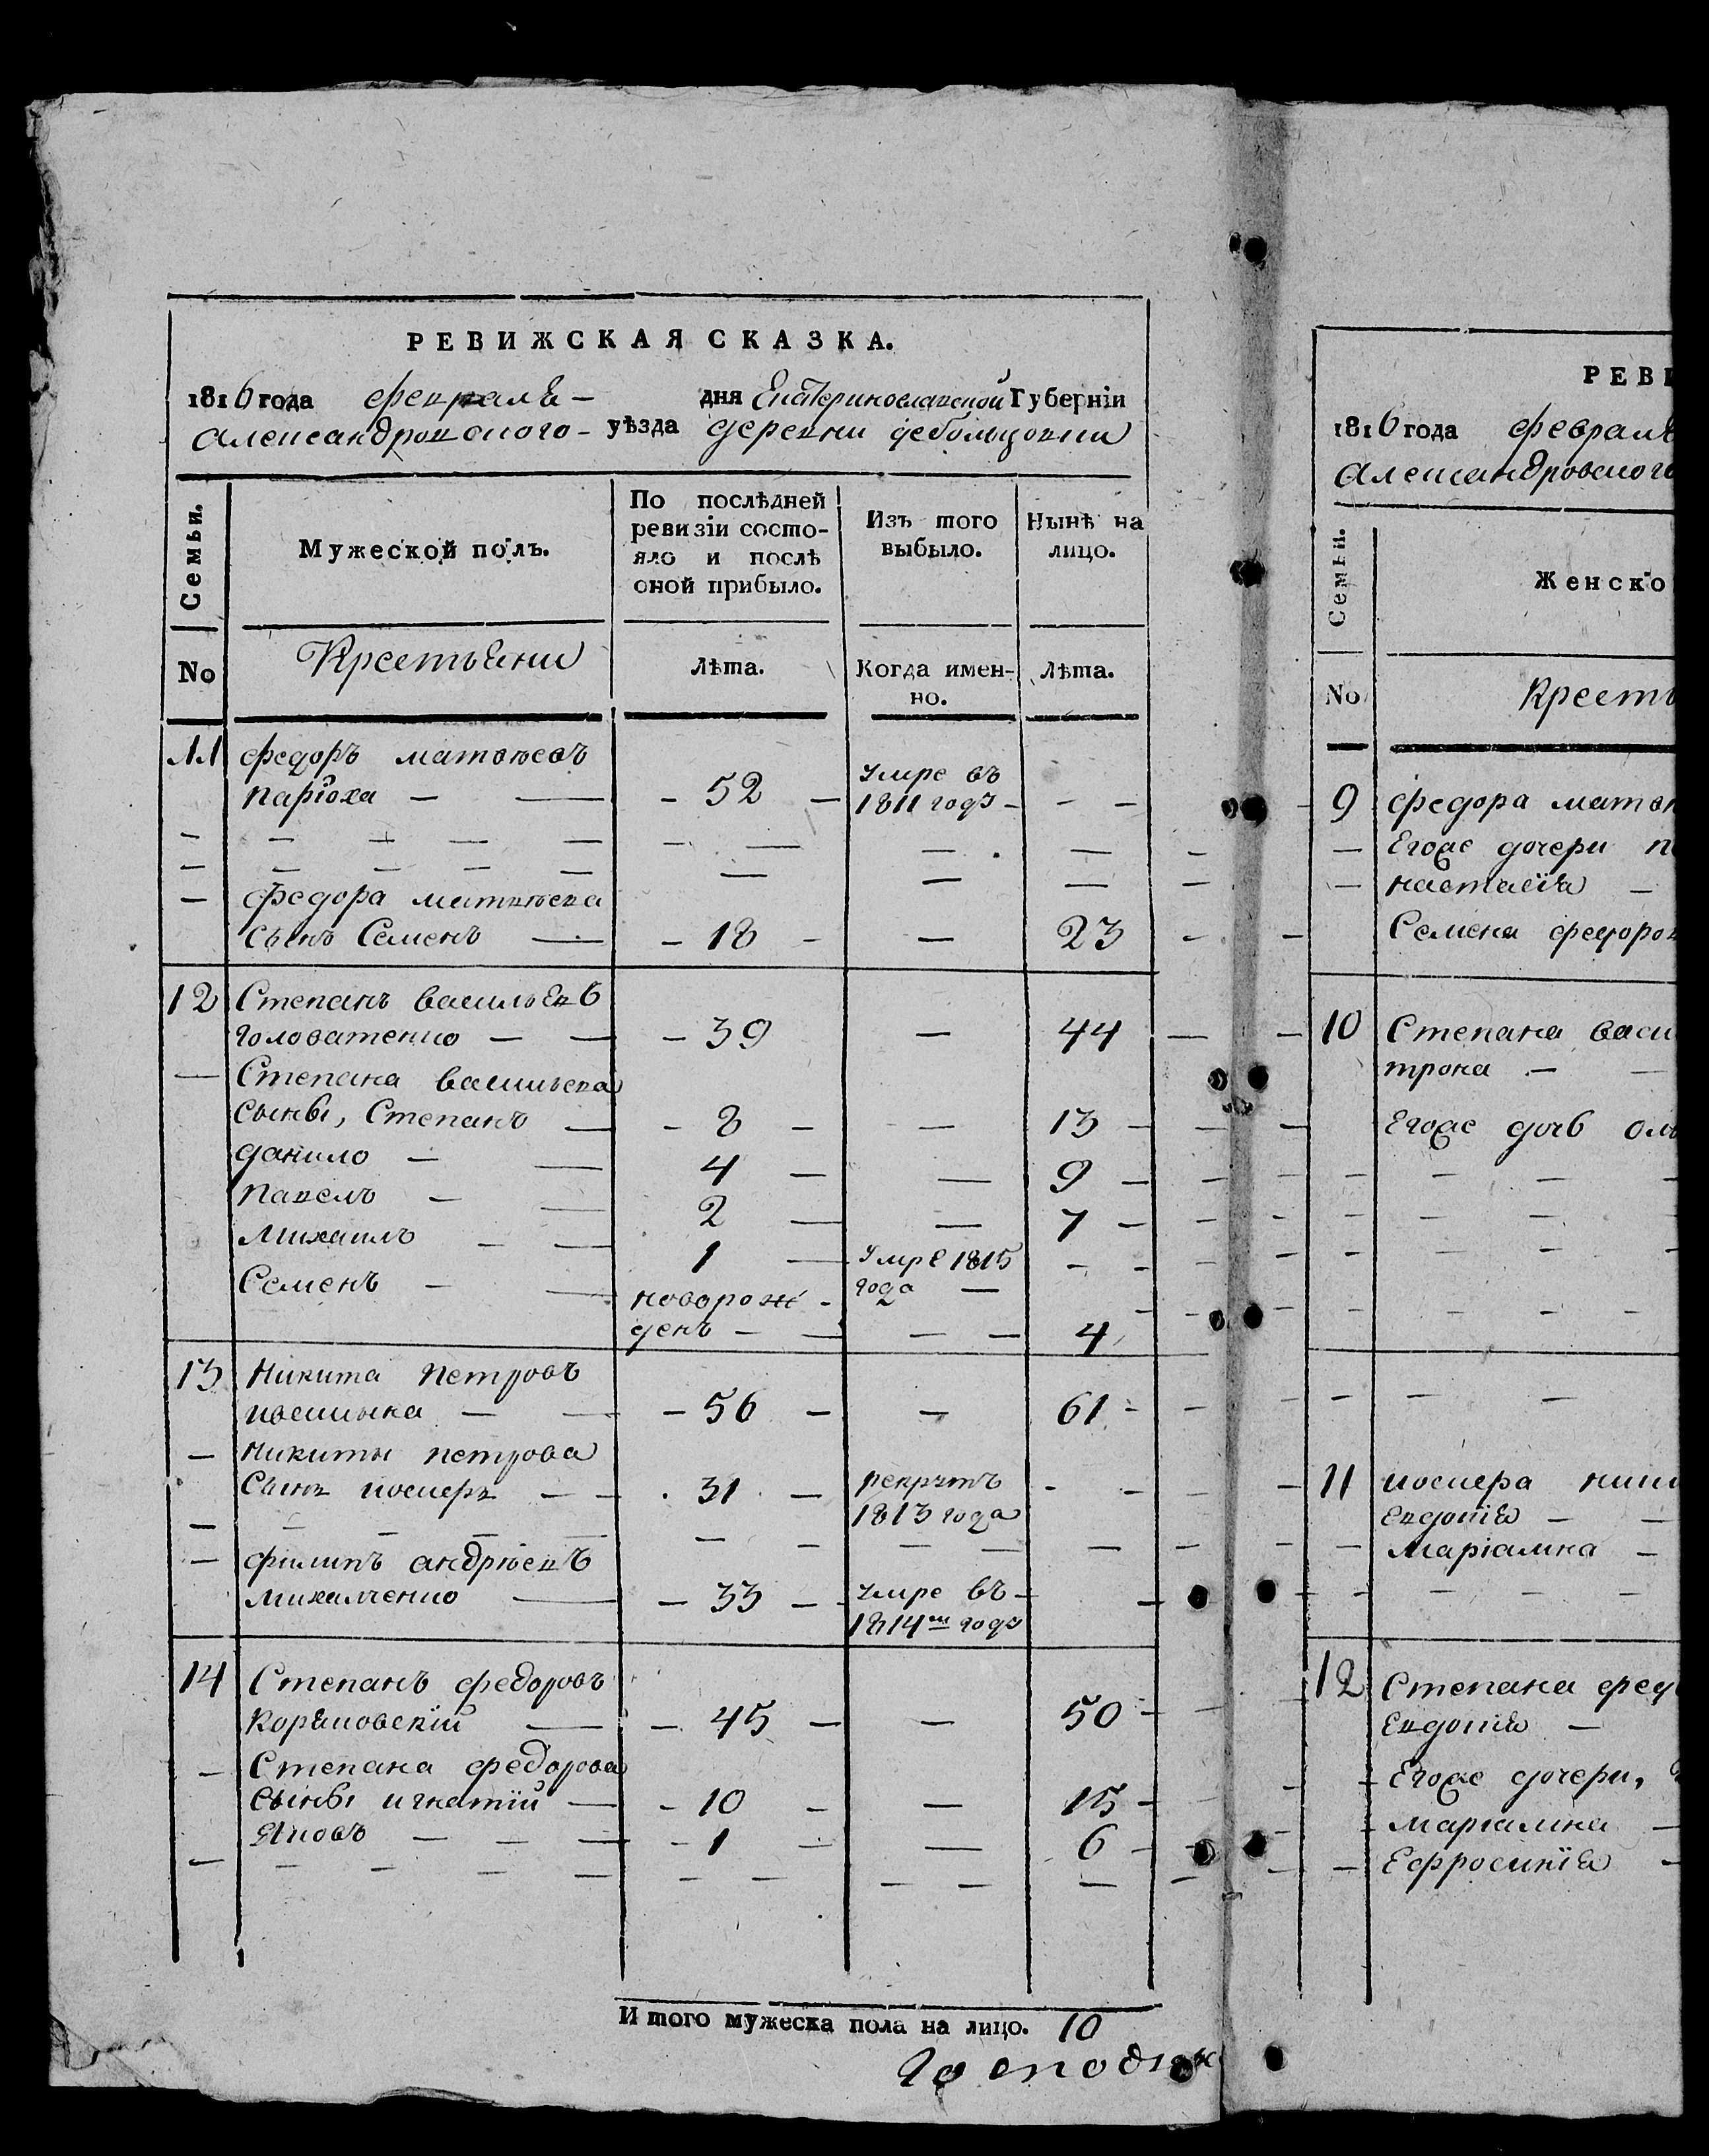 РЕВИЖСКАЯ СКАЗКА.
1816 года февраля – дня Екатеринославской Губерніи
Александровского – уѣзда деревни дебольцовки
Семьи.
Мужеской полъ.
По послѣдней
ревизіи состо-
яло и послѣ
оной прибыло.
Изъ того
выбыло.
Нынѣ на
лицо.
No
Крестьяни
Лѣта.
Когда имен-
но.
Лѣта.
11 федоръ матвѣевъ
паріоха — — 52 — умре въ 1811 году – – –
– федора матвѣева
сынъ Семенъ — – 18 – — 23
12 Степанъ васильевъ
головатенко — — – 39 — 44
— Степана васильева
сыны, Степанъ — – 8 – — 13 –
данило – — 4 — — 9 –
павелъ – — 2 — — 7 –
Михаилъ – — 1 — умре 1815 года — – –
Семенъ – — новорож-
денъ – — — — 4
13 Никита Петровъ
— — – 56 – — 61 –
– Никиты петрова
Сынъ – – 31 – рекрутъ 1813 года – –
– филипъ андрѣевъ
михалченко — – 33 – умре въ 1814м году –
14 Степанъ федоровъ
— – 45 – — 50 –
– Степана федорова
сыны игнатій — – 10 – — 15 –
Яковъ – – – – 1 – — 6 –
Итого мужеска пола на лицо. 10
РЕВИ
1816 года февраля
Александровского
Семьи.
Женско
No
Кресть
9 федора матв
Егоже дочери п
настасія –
Семена федоров
10 Степана васи
трона – –
Егоже дочь ол
11 ники
Евдокія – –
Маріамна –
12 Степана фед
Евдокія –
Егоже дочери,
маріамна –
Ефросинія –